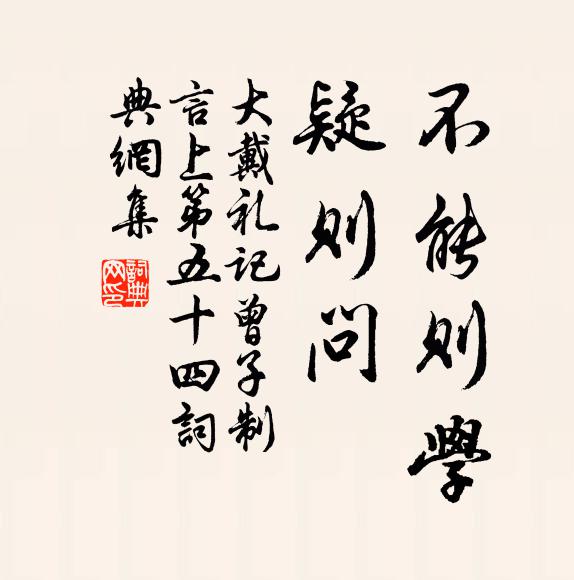 不能則學
疑則問
大戴礼記曾子制
言上第五十四詞
典網集
詞典網印